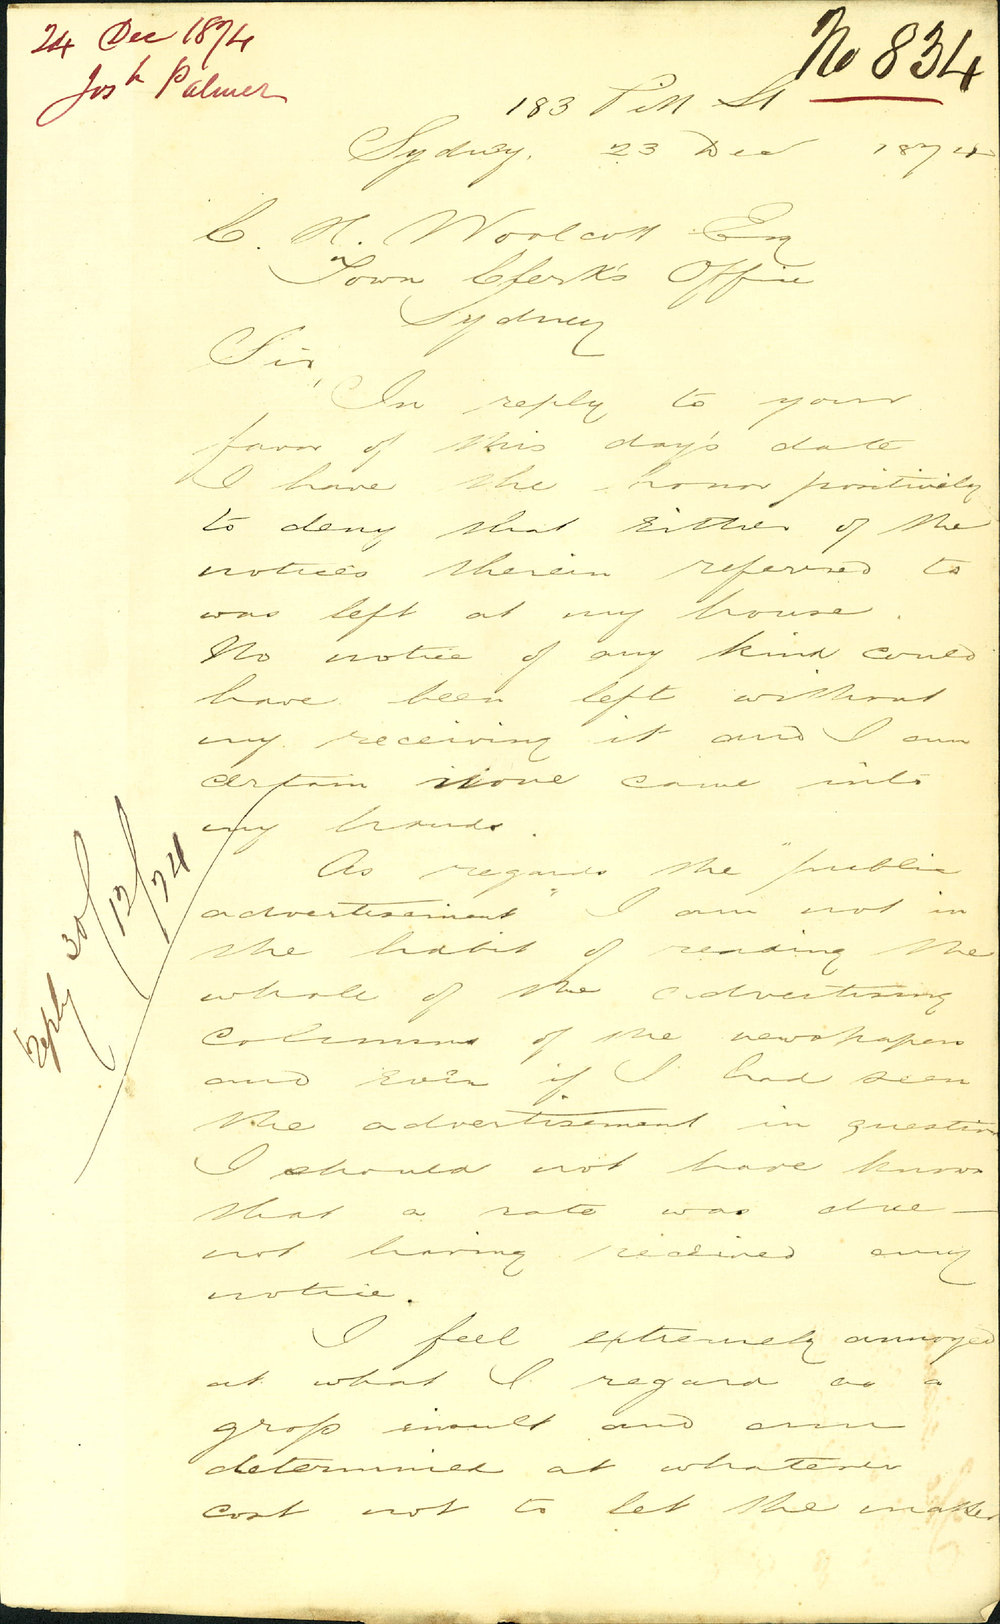 24 Dec 1874
Josh Palmer
No 834
183 Pitt St
Sydney. 23 Dec 1874
C. H. Woolcott Esq
Town Clerk's Office
Sydney
Sir,
In reply to your
favor of this day's date
I have the honor positively
to deny that either of the
notices therein referred to
was left at my house.
No notice of any kind could
have been left without
my receiving it and I am
certain none came into
my hands.
As regards the "public
advertisement" I am not in
the habit of reading the
whole of the advertising
columns of the newspapers
and even if I had seen
the advertisement in question
I should not have known
that a rate was due —
not having received any
notice.
I feel extremely annoyed
at what I regard as a
gross insult and am
determined at whatever
cost not to let the matter
reply 30/12/74